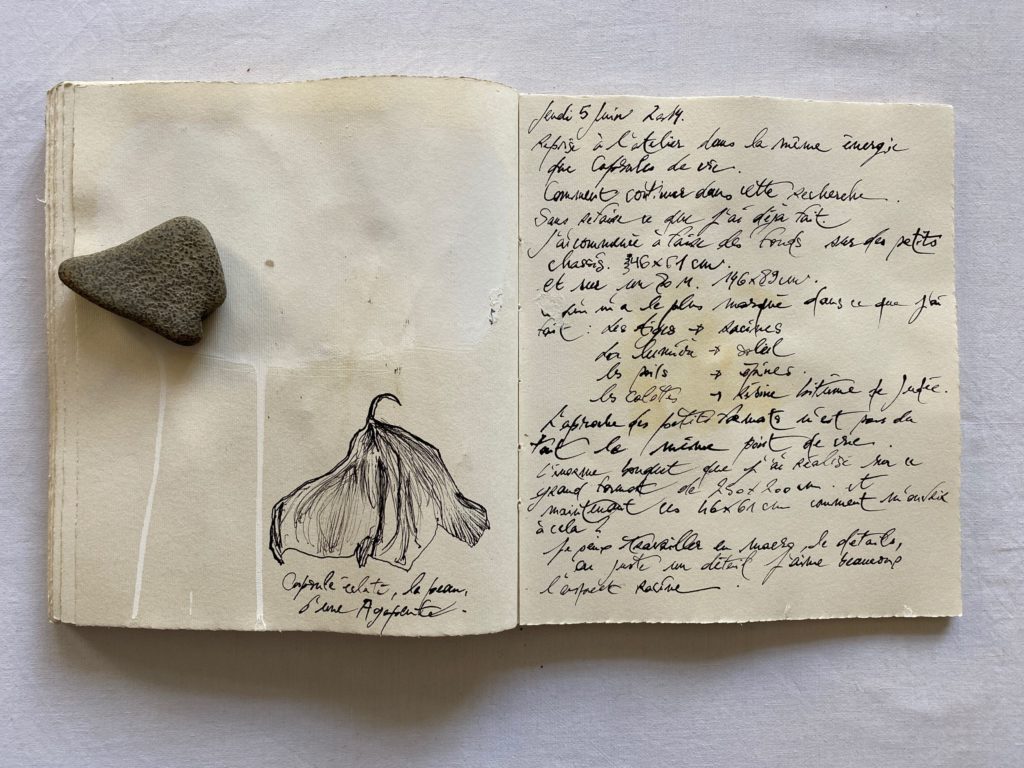 Capsule éclatée, la peau,
d'une Agapanthe.
Jeudi 5 Juin 2014.
Reprise à l'atelier dans la même énergie
que Capsules de vie.
Comment continuer dans cette recherche.
Sans refaire ce que j'ai déja fait
J'ai commencé à faire des fonds sur des petits
chassis. 46x61 cm.
et sur un 80 M. 146x89cm.
m'a le plus marqué dans ce que j'ai
fait : Les tiges → Racines
La lumière → soleil
les poils → épines.
les → Résine bitûme de Judée.
L'approche des petits formats n'est pas du
tout le même point de vue.
L'énorme bouquet que j'ai réalisé sur ce
grand format de 250x200cm. et
maintenant ces 46x61cm comment
à cela ?
Je peux travailler en macro, le détails,
ou juste un détail j'aime beaucoup
l'aspect racine